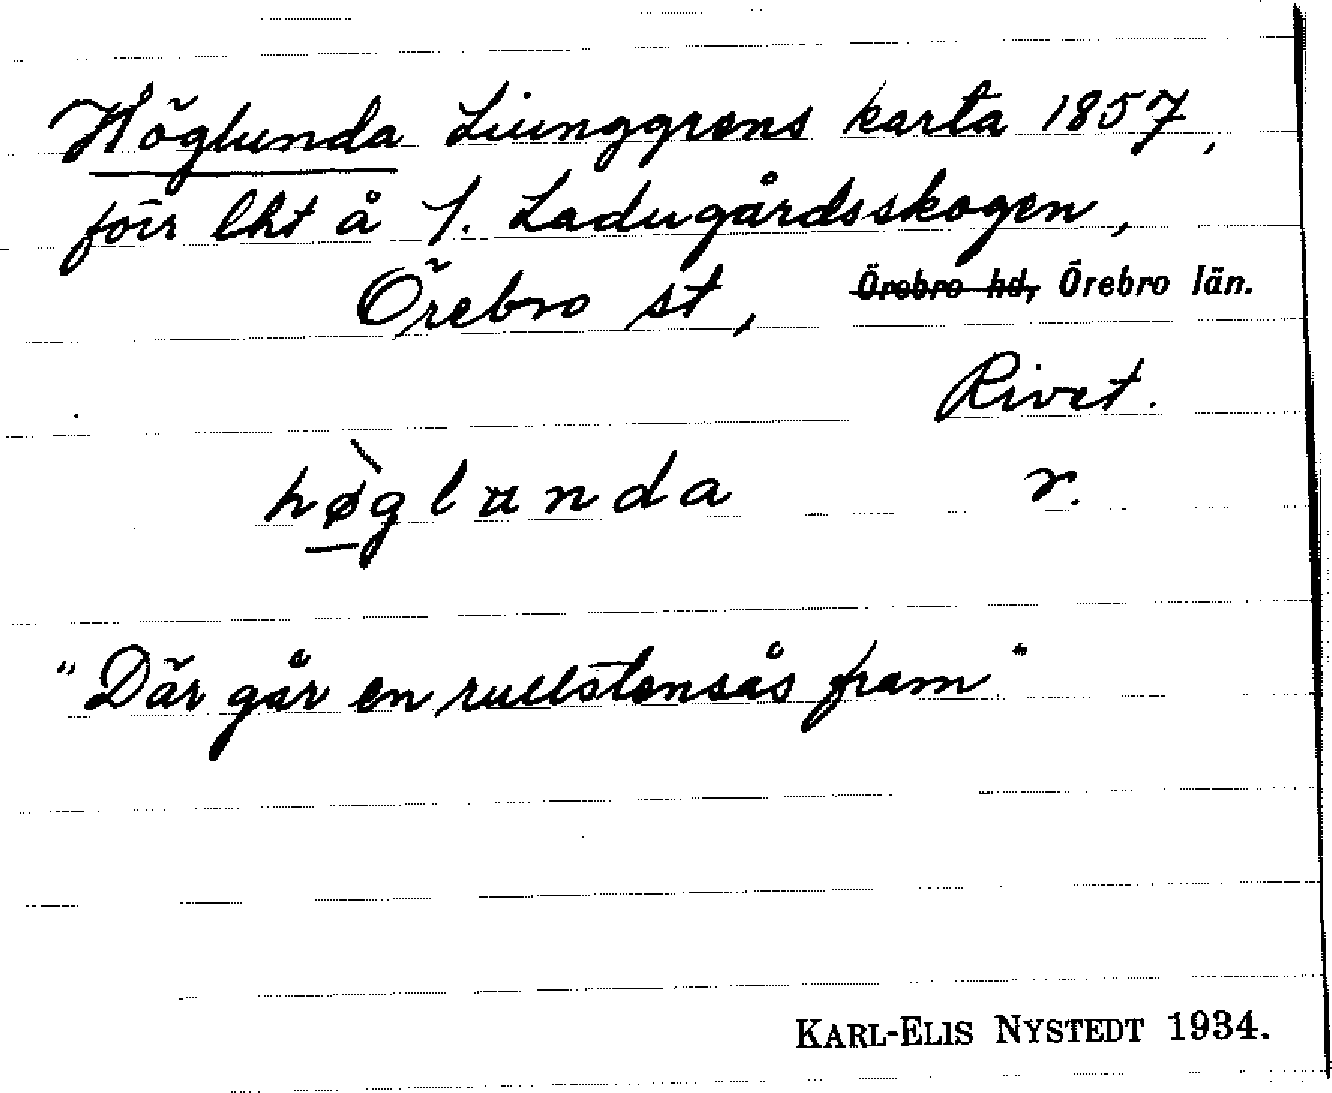 Höglunda Ljunggrens karta 1857,
förr lht å 1. Ladugårdsskogen,
Örebro st, Örebro hd, Örebro län.
Rivet.
hø̀glunda r.
"Där går en rullstensås fram"
KARL-ELIS NYSTEDT 1934.